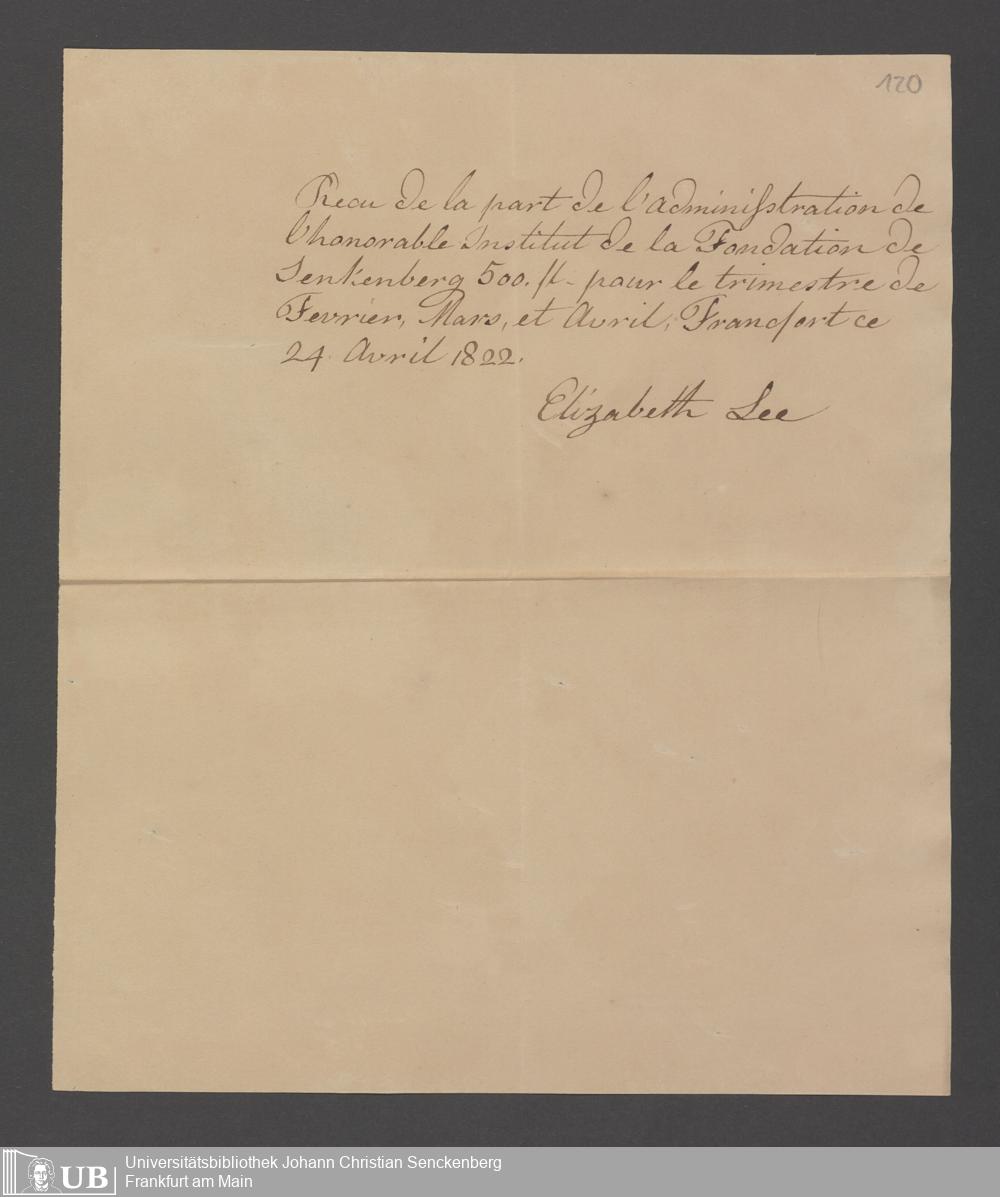 120
Recu de la part de l'adminisstration de
l'honorable Institut de la Fondation de
Senkenberg 500. fl. pour le trimestre de
Fevrier, Mars, et Avril, Francfort ce
24. Avril 1822.
Elizabeth Lee
UB
Universitätsbibliothek Johann Christian Senckenberg
Frankfurt am Main